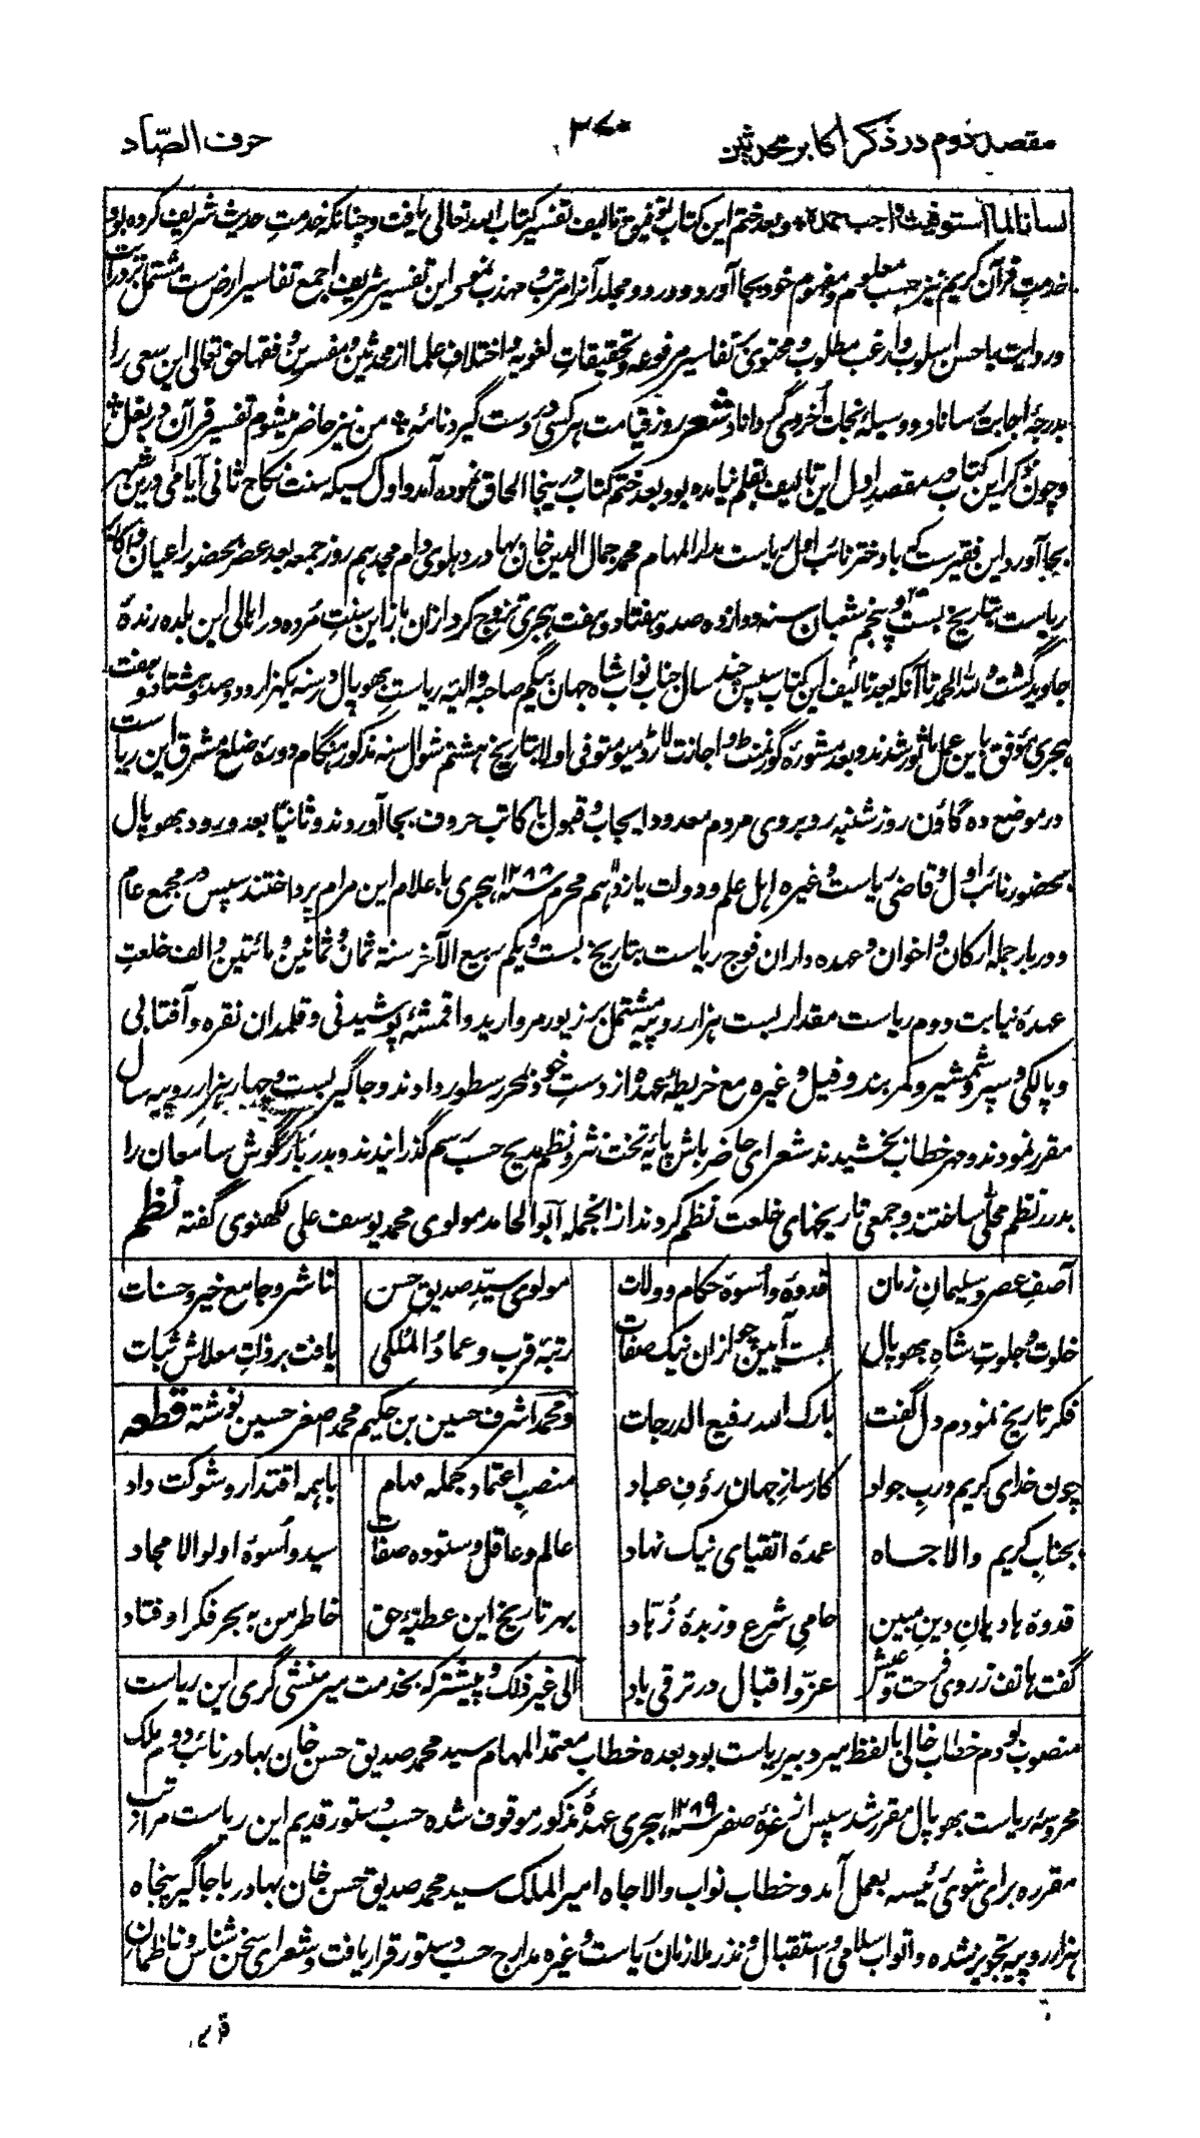 مقصد دوم در ذکر اکابر محدثین
۳۷۰
حرف الصّاد
لسانا لما استوفیت واجب حمده + و بعد ختم این کتاب توفیق تالیف تفسیر کتاب الله تعالی یافت و چنانکه خدمتِ حدیث شریف کرده بود
خدمتِ قرآن کریم نیز حسب معلوم و مفهوم خود بجا آورد و در دو مجلد آنرا مرتب و مهذب نمود این تفسیر شریف اجمع تفاسیر ارض ست مشتمل بر درایت
و روایت باحسن اسلوب و ارغب مطلوب و محتوی بر تفاسیر مرفوعه و تحقیقاتِ لغویه و اختلافِ علما از محدثین و مفسرین و فقها حق تعالی این سعی را
بدرجهٔ اجابت رساناد و وسیلهٔ نجات اُخروی گرداناد شعر روز قیامت هر کسی در دست گیرد نامهٔ + من نیز حاضر میشوم تفسیر قرآن در بغل +
و چون ذکر این کتاب در مقصدِ اول این تالیف بقلم نیامده بود بعد ختم کتاب در ینجا الحاق نموده آمد و اول کسیکه سنت نکاح ثانی آیامی درین شهر
بجا آورد این فقیرست که با دختر نائب اول ریاست مدار المهام محمد جمال الدین خان بهادر دهلوی دام مجدهم روز جمعه بعد عصر بحضور اعیان و ارکان
ریاست بتاریخ بست و پنجم شعبان سنه دوازده صد و هفتاد و هفت هجری تزوج کرد ازان باز این سنتِ مُرده در اهالی این بلده زندهٔ
جاوید گشت و لله الحمد تا آنکه بعد تالیف این کتاب سپس چند سال جناب نواب شاه جهان بیگم صاحبه والیهٔ ریاستِ بهوپال در سنه یکهزار و دو صد و هشتاد و هفت
هجری موفق باین عمل ماثور شدند و بعد مشورهٔ گورنمنٹ و اجازت لارڈ میو متوفی اولا بتاریخ هشتم شوال سنه مذکور هنگام دورهٔ ضلع مشرق این ریاست
در موضع ده گاؤن روز شنبه روبروی مردم معدود ایجاب و قبول با کاتب حروف بجا آوردند و ثانیاً بعد ورود بهوپال
بحضور نائب اول و قاضی ریاست و غیره اهل علم و دولت یازدهم محرم سنه ۱۲۸۸ هجری با علام این مرام پرداختند سپس در مجمع عام
و دربار جمله ارکان و اخوان و عهده داران فوج ریاست بتاریخ بست و یکم ربیع الآخر سنة ثمان و ثمانین و مائتین و الف خلعتِ
عهدهٔ نیابت دوم ریاست مقدار بست هزار روپیه مشتمل بر زیور مروارید و اقمشهٔ پوشیدنی و قلمدان نقره و آفتابی
و پالکی و سپر و شمشیر و کمر بند و فیل و غیره مع خریطهٔ عهده از دستِ خود بمحرر سطور دادند و جاگیر بست و چهار هزار روپیه سال
مقرر نمودند و مهر خطاب بخشیدند شعرای حاضر باش پایهٔ تخت نثر و نظم مدیح حسب رسم گذرانیدند و بدربار گوش سامعان را
بدرر نظم محلّی ساختند و جمعی تاریخهای خلعت نظم کردند از انجمله آبو الحامد مولوی محمد یوسف علی لکهنوی گفته نظم
آصفِ عصر و سلیمانِ زمان
قدوهٔ و اُسوهٔ حکام و ولات
مولوی سیّدِ صدیق حسن
ناشر و جامع خیر و حسنات
خلوت و جلوتِ شاهِ بهوپال
بست آیین چو ازان نیک صفات
رتبهٔ قرب و عمادُ المُلکی
یافت بر ذاتِ معلاش ثبات
فکر تاریخ نمودم دل گفت
بارک الله رفیع الدرجات
و محمد اشرف حسین بن حکیم محمد اصغر حسین نوشته قطعه
چون خدای کریم و ربِ جواد
کارسازِ جهان رؤفِ عباد
منصبِ اعتماد جمله مهام
با همه اقتدار و شوکت داد
بجنابِ کریم والا جاه
عمدهٔ اتقیای نیک نهاد
عالم و عاقل و ستوده صفات
سید و اُسوهٔ اولو الامجاد
قدوهٔ هادیانِ دینِ مبین
حامیِ شرع و زبدهٔ زُهّاد
بهر تاریخ این عطیّهٔ حق
خاطر من به بحرِ فکر اوفتاد
گفت هاتف ز روی فرحت و عیش
عزّ و اقبال در ترقی باد
الی غیر ذلک و پیشتر که بخدمت میر منشی گری این ریاست
منصوب بودم خطاب خالی با لفظ میر دبیر ریاست بود بعده خطاب معتمد المهام سید محمد صدیق حسن خان بهادر نائب دوم ملک
محروسهٔ ریاست بهوپال مقرر شد سپس از غرهٔ صفر سنه ۱۲۸۹ هجری عهدهٔ مذکور موقوف شده حسب دستور قدیم این ریاست مراتب
مقرره برای شوی رئیسه بعمل آمد و خطاب نواب والا جاه امیر الملک سید محمد صدیق حسن خان بهادر با جاگیر پنجاه
هزار روپیه تجویز شده و اتواب سلامی و استقبال و نذر ملازمان ریاست و غیره مدارج حسب دستور قرار یافت و شعرای سخن شناس و ناظمانِ